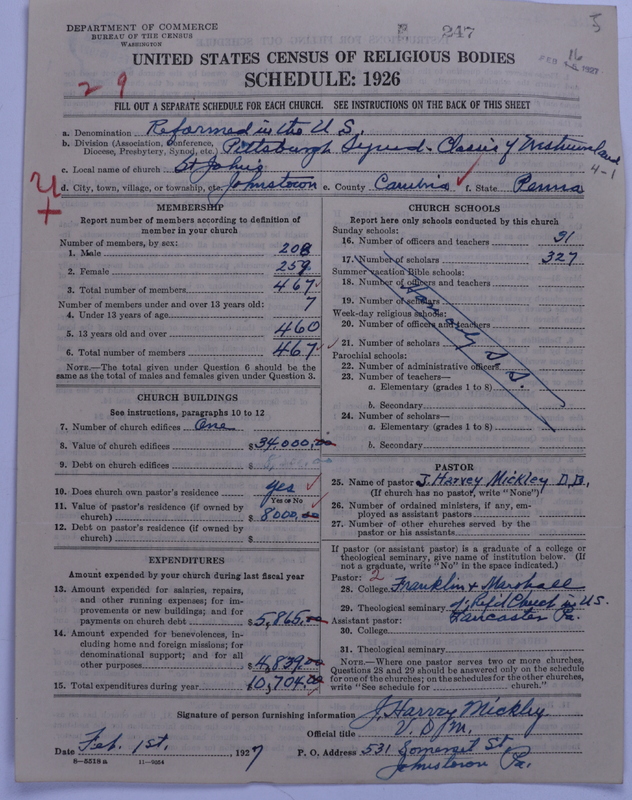 DEPARTMENT OF COMMERCE
BUREAU OF THE CENSUS
WASHINGTON
F 247
5
16
FEB 1927
UNITED STATES CENSUS OF RELIGIOUS BODIES
SCHEDULE: 1926
2 9
FILL OUT A SEPARATE SCHEDULE FOR EACH CHURCH. SEE INSTRUCTIONS ON THE BACK OF THIS SHEET
a. Denomination Reformed in the U.S.
b. Division (Association, Conference, Diocese, Presbytery, Synod, etc.) Pittsburgh Synod - Classis of Westmoreland
4-1
c. Local name of church St John's
d. City, town, village, or township, etc. Johnstown e. County Cambria f. State Penna
MEMBERSHIP
Report number of members according to definition of
member in your church
Number of members, by sex:
1. Male 208
2. Female 259
3. Total number of members 467
Number of members under and over 13 years old:
4. Under 13 years of age 7
5. 13 years old and over 460
6. Total number of members 467
NOTE.—The total given under Question 6 should be
the same as the total of males and females given under Question 3.
CHURCH BUILDINGS
See instructions, paragraphs 10 to 12
7. Number of church edifices One
8. Value of church edifices $34,000.00
9. Debt on church edifices $
10. Does church own pastor's residence yes
Yes or No
11. Value of pastor's residence (if owned by
church) $8000.00
12. Debt on pastor's residence (if owned by
church) $
EXPENDITURES
Amount expended by your church during last fiscal year
13. Amount expended for salaries, repairs,
and other running expenses; for im-
provements or new buildings; and for
payments on church debt $5,865.00
14. Amount expended for benevolences, in-
cluding home and foreign missions; for
denominational support; and for all
other purposes $4,839.00
15. Total expenditures during year 10,704.00
CHURCH SCHOOLS
Report here only schools conducted by this church
Sunday schools:
16. Number of officers and teachers 31
17. Number of scholars 327
Summer vacation Bible schools:
18. Number of officers and teachers
19. Number of scholars
Week-day religious schools:
20. Number of officers and teachers
21. Number of scholars
Parochial schools:
22. Number of administrative officers
23. Number of teachers—
a. Elementary (grades 1 to 8)
b. Secondary
24. Number of scholars—
a. Elementary (grades 1 to 8)
b. Secondary
only S.S.
PASTOR
25. Name of pastor J. Harvey Mickley D.D.,
(If church has no pastor, write "None")
26. Number of ordained ministers, if any, em-
ployed as assistant pastors
27. Number of other churches served by the
pastor or his assistants
If pastor (or assistant pastor) is a graduate of a college or
theological seminary, give name of institution below. (If
not a graduate, write "No" in the space indicated.)
Pastor: 2
28. College Franklin & Marshall
29. Theological seminary of Ref'd Church in U.S.
Assistant pastor: Lancaster Pa.
30. College
31. Theological seminary
NOTE.—Where one pastor serves two or more churches,
Questions 28 and 29 should be answered only on the schedule
for one of the churches; on the schedules for the other churches,
write "See schedule for church."
Signature of person furnishing information J. Harvey Mickley
Official title V.D.M.
Date Feb. 1st. 1927 P. O. Address 531 Somerset St
Johnstown Pa.
8—5518a 11—9054